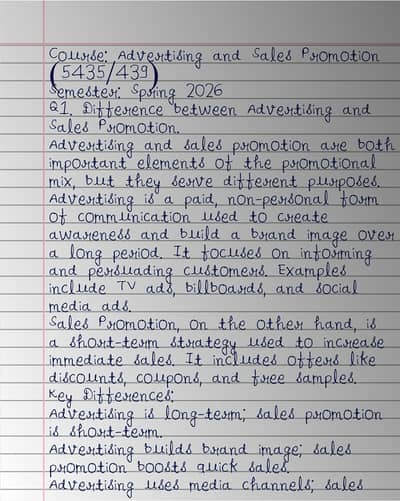 Course: Advertising and Sales Promotion
(5435/439)
Semester: Spring 2026
Q1. Difference between Advertising and
Sales Promotion.
Advertising and sales promotion are both
important elements of the promotional
mix, but they serve different purposes.
Advertising is a paid, non-personal form
of communication used to create
awareness and build a brand image over
a long period. It focuses on informing
and persuading customers. Examples
include TV ads, billboards, and social
media ads.
Sales Promotion, on the other hand, is
a short-term strategy used to increase
immediate sales. It includes offers like
discounts, coupons, and free samples.
Key Differences:
Advertising is long-term; sales promotion
is short-term.
Advertising builds brand image; sales
promotion boosts quick sales.
Advertising uses media channels; sales